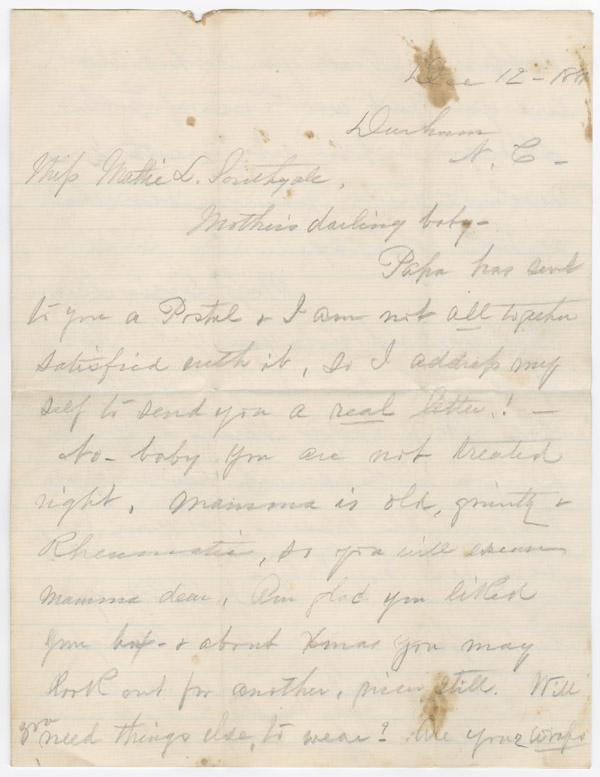 Dec 12 - 188
Durham
N. C -
Miss Mattie L. Southgate,
Mother's darling baby -
Papa has sent
to you a Postal & I am not all together
satisfied with it, so I address my
self to send you a real letter! -
No - baby you are not treated
right. Mamma is old, grunty &
Rheumatic, so you will excuse
Mamma dear. Am glad you liked
your box - & about Xmas you may
look out for another, nicer still. Will
you need things else, to wear? Are your wraps